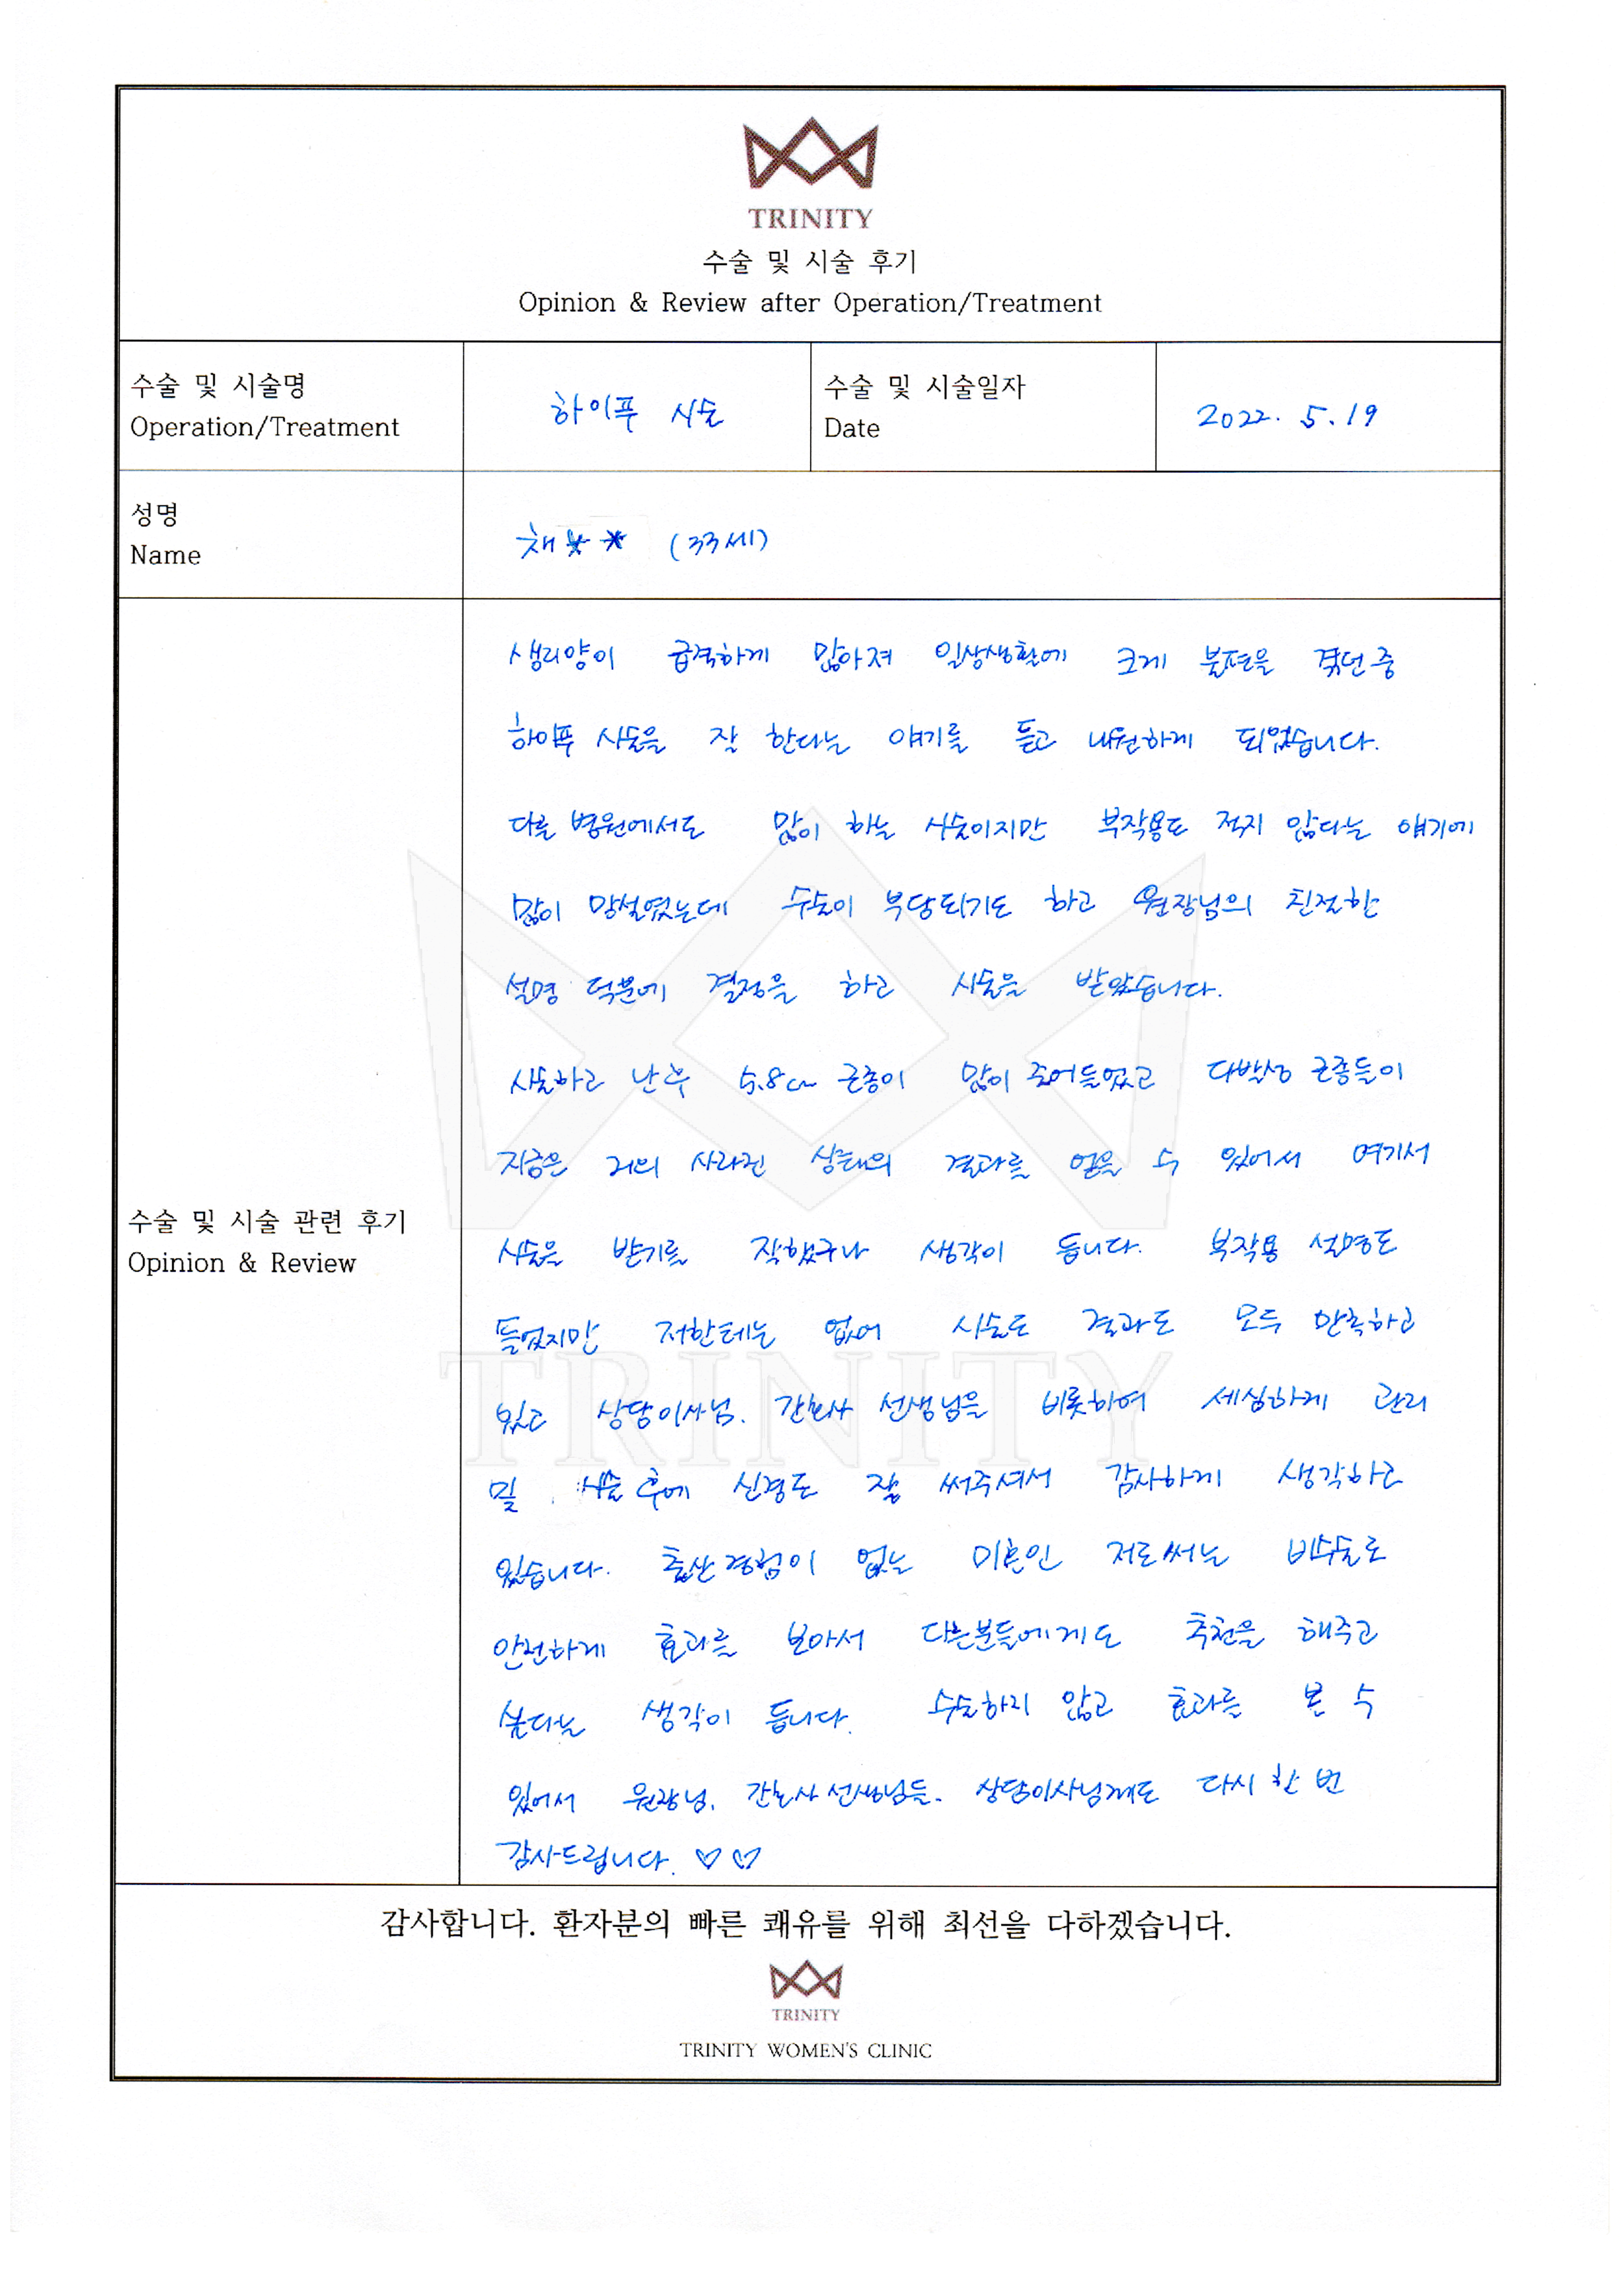 TRINITY
수술 및 시술 후기
Opinion & Review after Operation/Treatment
수술 및 시술명
Operation/Treatment
하이푸 시술
수술 및 시술일자
Date
2022. 5. 19
성명
Name
채** (33세)
수술 및 시술 관련 후기
Opinion & Review
생리양이 급격하게 많아져 일상생활에 크게 불편을 겪던 중
하이푸 시술을 잘 한다는 얘기를 듣고 내원하게 되었습니다.
다른 병원에서도 많이 하는 시술이지만 부작용도 적지 않다는 얘기에
많이 망설였는데 수술이 부담되기도 하고 원장님의 친절한
설명 덕분에 결정을 하고 시술을 받았습니다.
시술하고 난 후 5.8cm 근종이 많이 줄어들었고 다발성 근종들이
지금은 거의 사라진 상태의 결과를 얻을 수 있어서 여기서
시술을 받기를 잘했구나 생각이 듭니다. 부작용 설명도
들었지만 저한테는 없어 시술도 결과도 모두 만족하고
있고 상담이사님, 간호사 선생님을 비롯하여 세심하게 관리
및 시술 후에 신경도 잘 써주셔서 감사하게 생각하고
있습니다. 출산경험이 없는 미혼인 저로써는 비수술로
안전하게 효과를 보아서 다른분들에게도 추천을 해주고
싶다는 생각이 듭니다. 수술하지 않고 효과를 본 수
있어서 원장님, 간호사 선생님들, 상담이사님께도 다시 한 번
감사드립니다. ♡♡
TRINITY
감사합니다. 환자분의 빠른 쾌유를 위해 최선을 다하겠습니다.
TRINITY
TRINITY WOMEN'S CLINIC